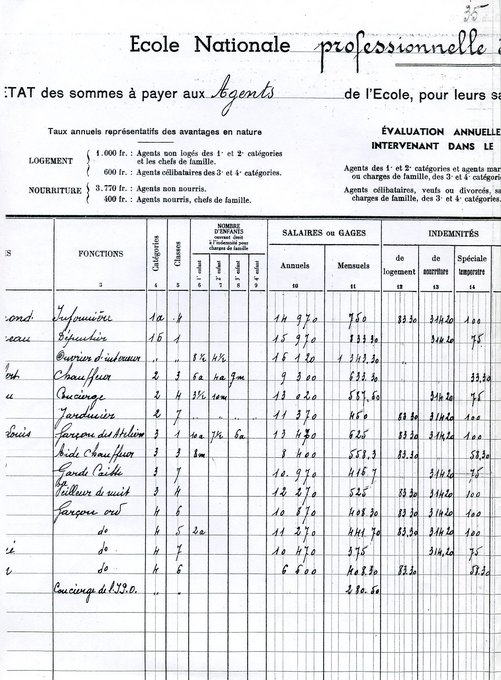 35
Ecole Nationale professionnelle
ETAT des sommes à payer aux Agents de l'Ecole, pour leurs sa
Taux annuels représentatifs des avantages en nature
ÉVALUATION ANNUELLE
INTERVENANT DANS LE
LOGEMENT
1.000 fr. : Agents non logés des 1re et 2e catégories
et les chefs de famille.
600 fr. : Agents célibataires des 3e et 4e catégories.
NOURRITURE
3.770 fr. : Agents non nourris.
400 fr. : Agents nourris, chefs de famille.
Agents des 1re et 2e catégories et agents mar
ou charges de famille, des 3e et 4e catégori
Agents célibataires, veufs ou divorcés, sa
charges de famille, des 3e et 4e catégories.
FONCTIONS Catégories Classes NOMBRE D'ENFANTS ouvrant droit à l'indemnité pour charges de famille SALAIRES ou GAGES INDEMNITÉS
1er enfant 2e enfant 3e enfant 4e enfant Annuels Mensuels de logement de nourriture Spéciale temporaire
3 4 5 6 7 8 9 10 11 12 13 14
ond Infirmière 1a 4 14 970 750 83.30 314.20 100
eau Dépensier 1b 1 15 970 833.30 314.20 75
Ouvrier d'intérieur " " 8½ 4½ 16 120 1 343.30
Chauffeur 2 3 6a 4a 9m 9 300 633.30 33.30
Concierge 2 4 3½ 10m 13 020 587.50 314.20 75
Jardinier 2 7 11 370 450 83.30 314.20 100
Louis Garçon des Ateliers 3 1 10a 7½ 6a 625 83.30 314.20 100
Aide Chauffeur 3 3 8m 8 400 558.3 83.30 58.30
3 7 10 970 416 7 314.20 75
Veilleur de nuit 3 4 12 270 525 83.30 314.20 100
Garçon ord 4 6 10 870 408.30 83.30 314.20 100
do 4 5 2a 11 270 441 70 83.30 314.20 100
do 4 7 10 470 375 314.20 75
do 4 6 6 600 408.30 83.30 58.30
Concierge de l'I.P.O. " " 280.50